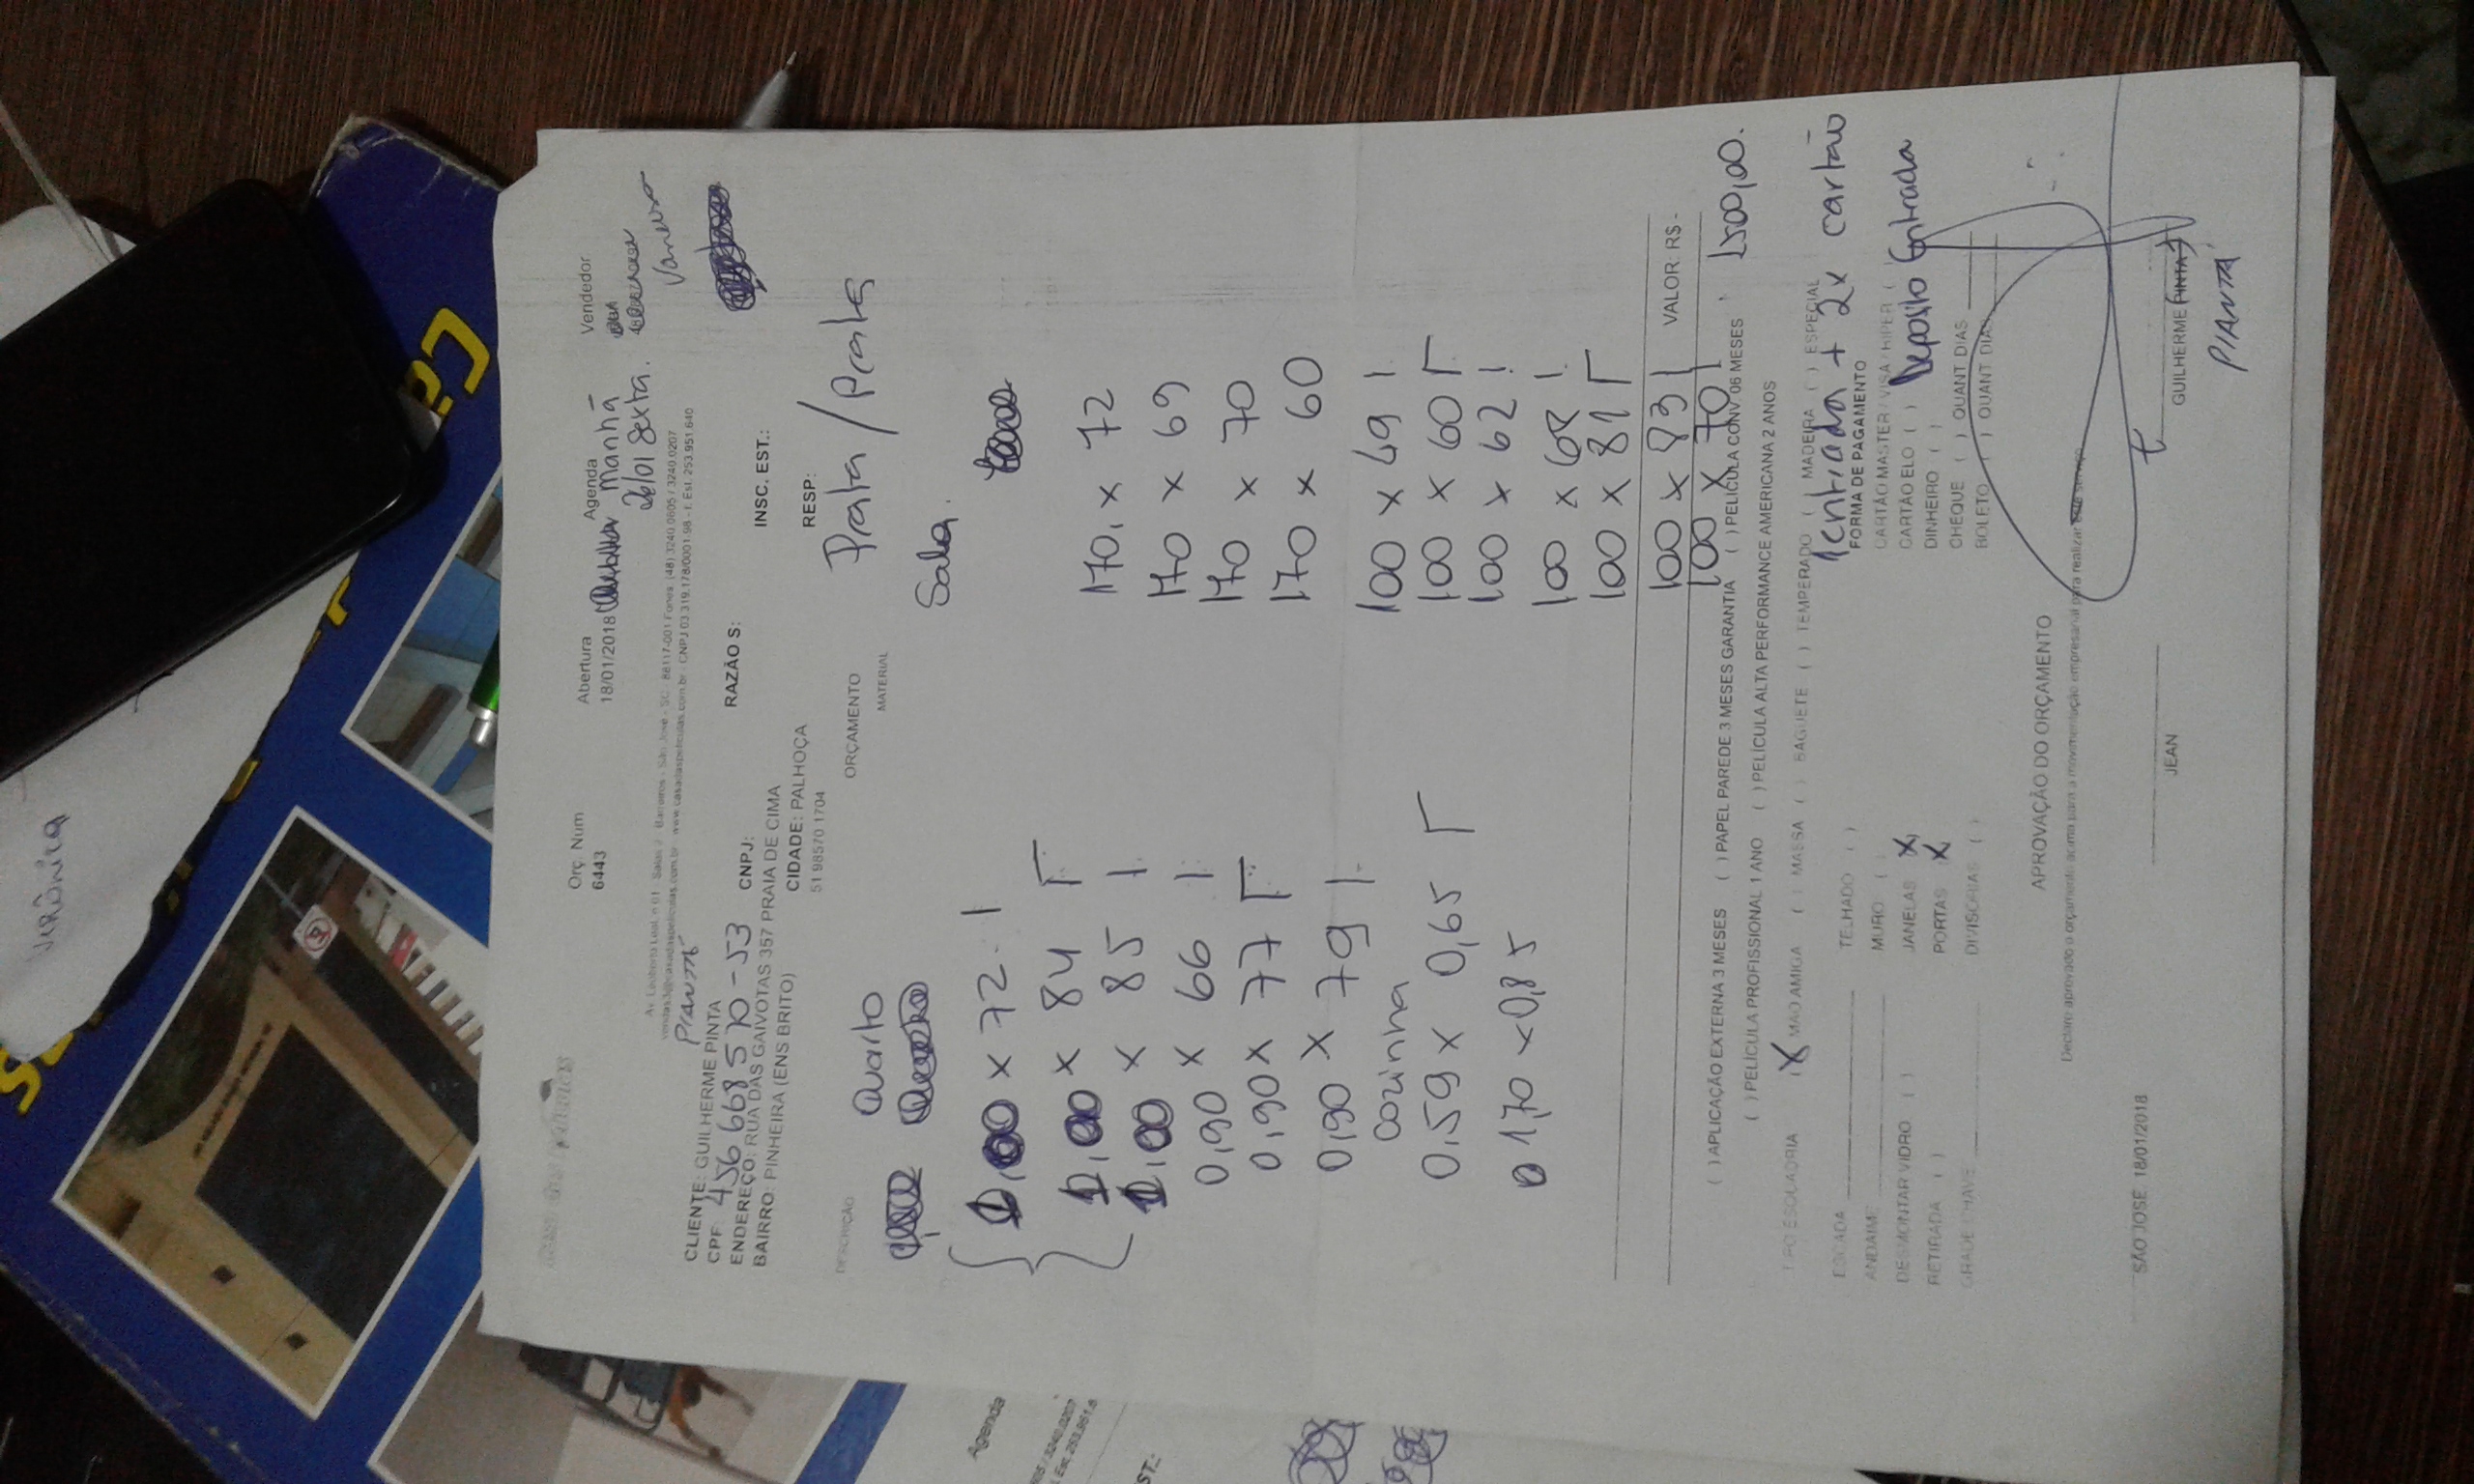 Verônica
Orç. Num
6443
Abertura
18/01/2018
Agenda
manhã
26/01 Sexta.
Vendedor
Vanessa
Av. Leoberto Leal, n 01 Salas 2 Barreiros - São José - SC. 88117-001 Fones (48) 3240.0605 / 3240.0207
www.casadaspeliculas.com.br - CNPJ 03.319.178/0001-98 - I. Est. 253.951.640
PIANTÁ
CLIENTE: GUILHERME PINTA
RAZÃO S:
INSC. EST.:
CPF 456 668 570-53
CNPJ:
ENDEREÇO: RUA DAS GAIVOTAS 357 PRAIA DE CIMA
BAIRRO: PINHEIRA (ENS BRITO)
CIDADE: PALHOÇA
RESP:
51 98570 1704
DESCRIÇÃO
ORÇAMENTO
MATERIAL
Prata / Prata
Quarto
1,00 x 72
1,00 x 84
1,00 x 85
0,90 x 66
0,90 x 77
0,90 x 79
cozinha
0,59 x 0,65
1,70 x 0,85
Sala.
170, x 72
170 x 69
170 x 70
170 x 60
100 x 49
100 x 60
100 x 62
100 x 68
100 x 81
100 x 83
100 x 70
VALOR: R$ -
1500,00.
( ) APLICAÇÃO EXTERNA 3 MESES ( ) PAPEL PAREDE 3 MESES GARANTIA ( ) PELICULA CONV 06 MESES
( ) PELÍCULA PROFISSIONAL 1 ANO ( ) PELÍCULA ALTA PERFORMANCE AMERICANA 2 ANOS
TIPO ESQUADRIA (X MÃO AMIGA ( ) MASSA ( ) BAGUETE ( ) TEMPERADO ( ) MADEIRA ( ) ESPECIAL
1 entrada + 2x cartão
ESCADA
ANDAIME
DESMONTAR VIDRO ( )
RETIRADA ( )
GRADE CHAVE
TELHADO ( )
MURO ( )
JANELAS X
PORTAS X
DIVISORIAS ( )
FORMA DE PAGAMENTO
CARTÃO MASTER / VISA / HIPER (
CARTÃO ELO ( )
Deposito Entrada
DINHEIRO ( )
CHEQUE ( ) QUANT DIAS
BOLETO ( ) QUANT DIAS
APROVAÇÃO DO ORÇAMENTO
Declaro aprovado o orçamento acima para a movimentação empresarial para realizar
SÃO JOSÉ 18/01/2018
JEAN
GUILHERME PINTA
PIANTÁ
Agenda